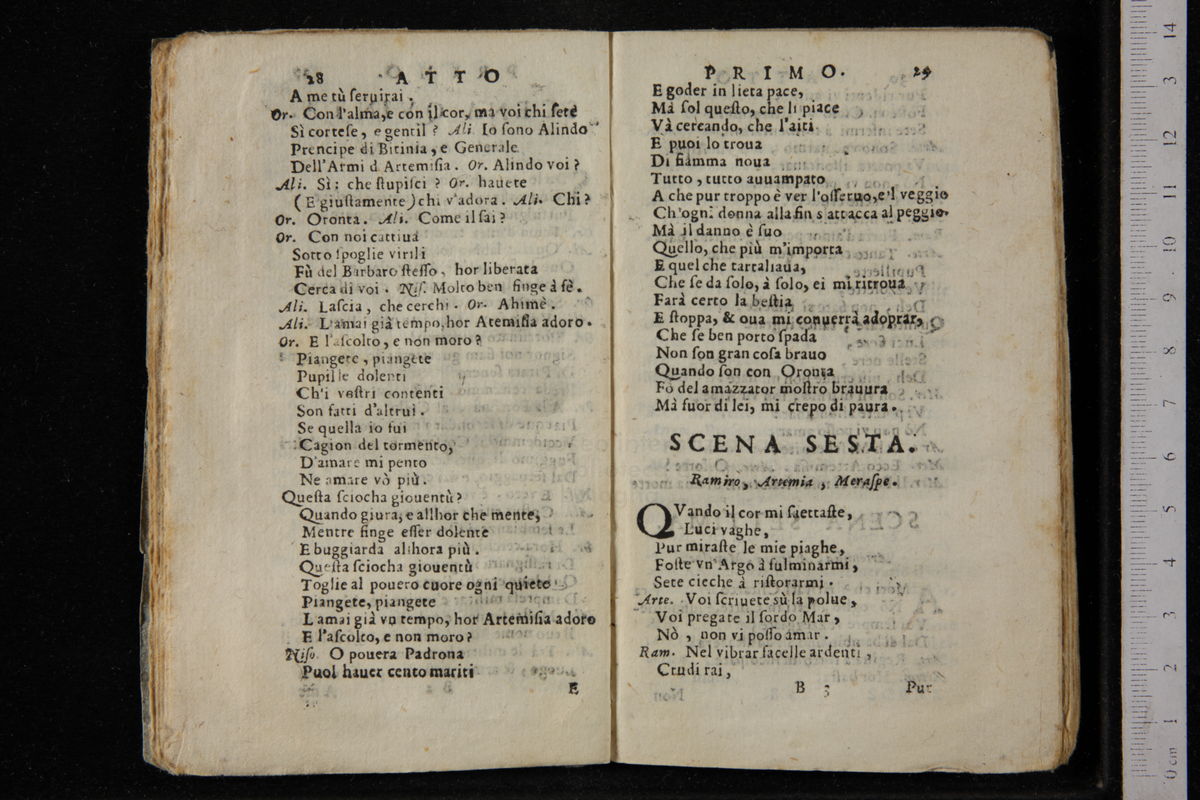 28 ATTO
A me tù ſeruirai.
Or. Con l'alma, e con il cor, ma voi chi ſete
Sì corteſe, e gentil? Ali. Io ſono Alindo
Prencipe di Bitinia, e Generale
Dell'Armi d Artemiſia. Or. Alindo voi?
Ali. Sì: che ſtupiſci? Or. hauete
(E giuſtamente) chi v'adora. Ali. Chi?
Or. Oronta. Ali. Come il ſai?
Or. Con noi cattiua
Sotto ſpoglie virili
Fù del Barbaro ſteſſo, hor liberata
Cerca di voi. Niſ. Molto ben finge à fè.
Ali. Laſcia, che cerchi. Or. Ahimè.
Ali. L'amai già tempo, hor Atemiſia adoro.
Or. E l'aſcolto, e non moro?
Piangete, piangete
Pupille dolenti
Ch'i voſtri contenti
Son fatti d'altrui.
Se quella io fui
Cagion del tormento,
D'amare mi pento
Ne amare vò più.
Queſta ſciocha giouentù?
Quando giura, e allhor che mente,
Mentre finge eſſer dolente
E buggiarda alihora più.
Queſta ſciocha giouentù
Toglie al pouero cuore ogni quiete
Piangete, piangete
L amai già vn tempo, hor Artemiſia adoro
E l'aſcolto, e non moro?
Niſo. O pouera Padrona
Puoi hauer cento mariti
E
PRIMO. 29
E goder in lieta pace,
Mà ſol queſto, che li piace
Và cercando, che l'aiti
E puoi lo troua
Di fiamma noua
Tutto, tutto auuampato
A che pur troppo è ver l'oſſeruo, e'l veggio
Ch'ogni donna alla fin s attacca al peggio.
Mà il danno è ſuo
Quello, che più m'importa
E quel che tartaliaua,
Che ſe da ſolo, à ſolo, ei mi ritroua
Farà certo la beſtia
E ſtoppa, & oua mi conuerrà adoprar,
Che ſe ben porto ſpada
Non ſon gran coſa brauo
Quando ſon con Oronta
Fò del amazzator moſtro brauura
Mà fuor di lei, mi crepo di paura.
SCENA SESTA.
Ramiro, Artemia, Meraſpe.
QVando il cor mi ſaettaſte,
Luci vaghe,
Pur miraſte le mie piaghe,
Foſte vn'Argo à fulminarmi,
Sete cieche à riſtorarmi.
Arte. Voi ſcriuete sù la polue,
Voi pregate il ſordo Mar,
Nò, non vi poſſo amar.
Ram. Nel vibrar facelle ardenti,
Crudi rai,
B 3 Pur